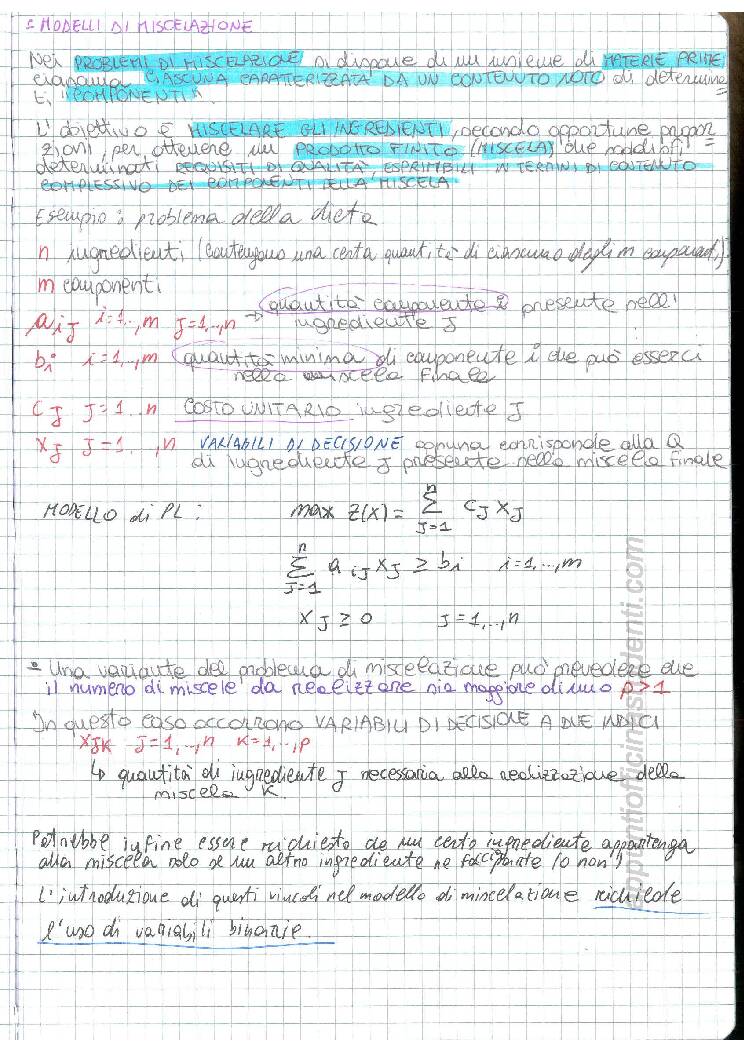 - MODELLI DI MISCELAZIONE
Nei PROBLEMI DI MISCELAZIONE si dispone di un insieme di MATERIE PRIME
ciascuna CIASCUNA CARATTERIZZATA DA UN CONTENUTO NOTO di determina=
ti "COMPONENTI".
L'obiettivo è MISCELARE GLI INGREDIENTI, secondo opportune propor
zioni, per ottenere un PRODOTTO FINITO (MISCELA) che soddisfi
determinati REQUISITI DI QUALITÀ, ESPRIMIBILI IN TERMINI DI CONTENUTO
COMPLESSIVO DEI COMPONENTI DELLA MISCELA
Esempio: problema della dieta
n ingredienti (contengono una certa quantità di ciascuno degli m component.)
m componenti
aij i=1,..,m J=1,..,n → quantità componente i presente nell'
ingrediente J
bi i=1,..,m quantità minima di componente i che può esserci
nella miscela finale
cJ J=1..n COSTO UNITARIO ingrediente J
xJ J=1,..,n VARIABILI DI DECISIONE ognuna corrisponde alla Q
di ingrediente J presente nella miscela finale
MODELLO di PL: max z(x) = Σ_{J=1}^{n} cJ xJ
Σ_{J=1}^{n} aiJ xJ ≥ bi i=1,..,m
xJ ≥ 0 J=1,..,n
- Una variante del problema di miscelazione può prevedere che
il numero di miscele da realizzare sia maggiore di uno p>1
In questo caso occorrono VARIABILI DI DECISIONE A DUE INDICI
xJK J=1,..,n K=1,..,p
↳ quantità di ingrediente J necessaria alla realizzazione della
miscela K.
Potrebbe infine essere richiesto che un certo ingrediente appartenga
alla miscela solo se un altro ingrediente ne faccia parte (o non)
L'introduzione di questi vincoli nel modello di miscelazione richiede
l'uso di variabili binarie.
appuntiofficinastudenti.com